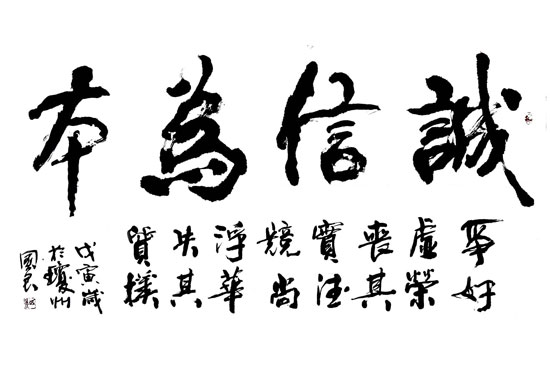 誠信為本
爭好
虛榮
喪其
實德
競尚
浮華
失其
質樸
戊寅歲
於瓊州
國